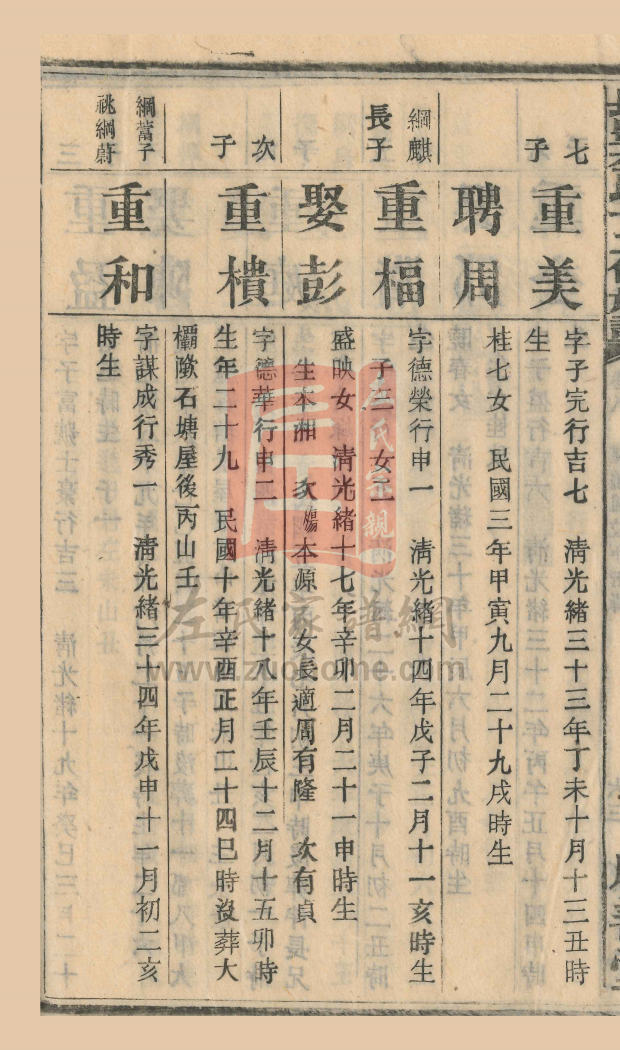 七
子
重美
字子完行吉七　清光緒三十三年丁未十月十三丑時
生
聘周
桂七女　民國三年甲寅九月二十九戌時生
綱麒
長子
重福
字德榮行申一　清光緒十四年戊子二月十一亥時生
子三　女二
娶彭
盛映女　清光緒十七年辛卯二月二十一申時生
生本湘　次瑒　本源　女長適周有隆　次有貞
次
子
重樻
字德華行申二　清光緒十八年壬辰十二月十五卯時
生年二十九　民國十年辛酉正月二十四巳時沒葬大
欛隂石塘屋後丙山壬
綱蕾子
祧綱蔚
重和
字謀成行秀一　清光緒三十四年戊申十一月初二亥
時生
左氏宗親
左氏家譜網
www.zuos.home